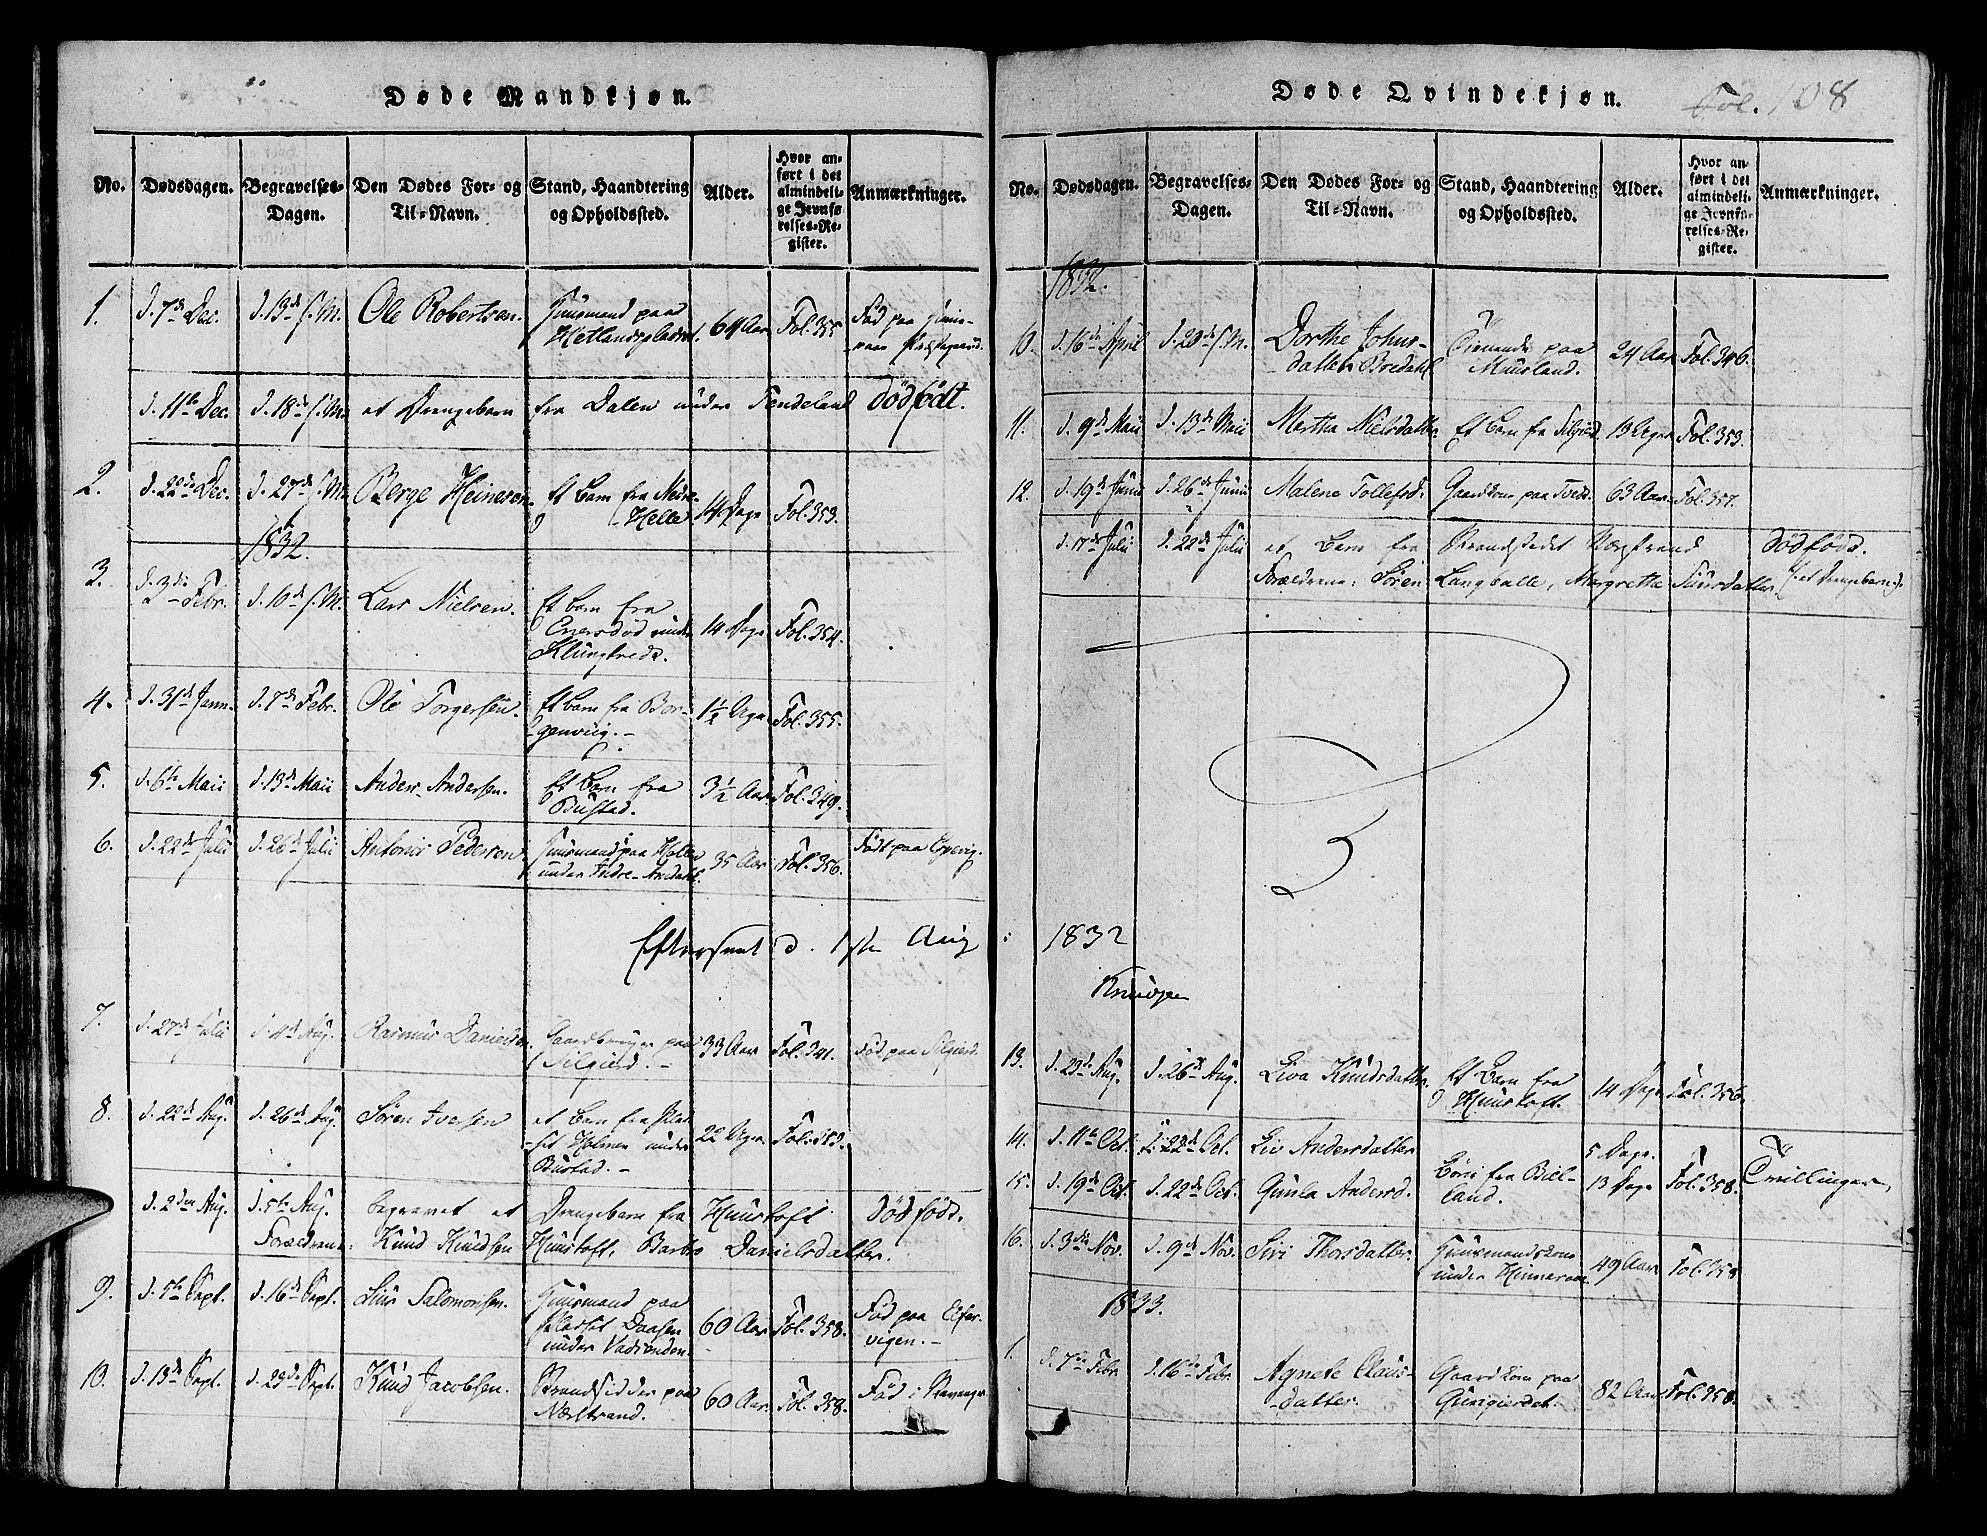 Døde Mandkjøn.
No. Dødsdagen. Begravelses-Dagen. Den Dødes For- og Til-Navn. Stand, Haandtering og Opholdssted. Alder. Hvor anført i det almindelige Jevnførelses-Register. Anmærkninger.
1. d. 7de Dec. d. 13de s. M. Ole Robertsen. Huusmand paa 64 Aar Fol. 355 Fød paa
d. 11te Dec. d. 18de s. M. et Drengebarn fra Dalen under Tendeland dødfødt.
2. d. 22de Dec. d. 27de s. M. Berge Heinesen. Et Barn fra Nedre-Helle 14 Dage Fol. 353.
1832.
3. d. 3die Febr. d. 10de s. M. Lars Nielsen. Et Barn fra under Klungtvedt. 14 Dage Fol. 354.
4. d. 31de Jann. d. 7de Febr. Ole Torgersen. Et Barn fra Borgenviig.- 1½ Uger Fol. 355.
5. d. 6te Maii d. 13de Maii Anders Andersen. Et Barn fra Bustad. 3½ Aar Fol. 349.
6. d. 22de Julii d. 26de Julii Antonis Pedersen Huusmand paa Helle under Indre-Aredahl. 35 Aar Fol. 356. Født paa
Eftersent d. 1ste Aug
7. d. 27de Julii d. 4de Aug. Rasmus Danielsen. Gaardbruger paa Silgierd.- 33 Aar Fol. 341. Fød paa Silgierd.
8. d. 22de Aug. d. 26de Aug. Søren Iversen et Barn fra Pladset Holmen under Bustad.- 22 Uger Fol. 353.
d. 2den Aug. d. 5te Aug. begravet et Drengebarn fra Huustoft dødfødt.
Forældrene: Knud Knudsen Huustoft, Barbo Danielsdatter.
9. d. 5te Sept. d. 16de Sept. Siur Salomonsen. Huusmand paa Pladset Daasen under Vadsenden. 60 Aar Fol. 358. Fød paa
10. d. 13de Sept. d. 23de Sept. Knud Jacobsen. Strandsidder paa Nærstrand. 60 Aar. Fol. 358. Fød i Stavanger
Døde Qvindekjøn. Fol. 108
No. Dødsdagen. Begravelses-Dagen. Den Dødes For- og Til-Navn. Stand, Haandtering og Opholdssted. Alder. Hvor anført i det almindelige Jevnførelses-Register. Anmærkninger.
1832.
10. d. 16de April d. 20de s. M. Dorthe Johnsdatter Bredahl Tienende paa Muusland. 24 Aar Fol. 346.
11. d. 9de Maii d. 13de Maii Mertha Nielsdatter. Et Barn fra Silgierd 13 Uger Fol. 353.
12. d. 19de Junii d. 26de Junii Malene Tollefsd. Gaardkone paa Tvedt. 63 Aar Fol. 357.
d. 17de Julii d. 22de Julii et Barn fra Strandstedet Nærstrand dødfødt.
Forældrene: Søren Langballe, Margretha Siursdatter. (: et Drengebarn :).
1832
13. d. 23de Aug. d. 26de Aug. Siva Knudsdatter. Et Barn fra Huustoft. 14 Dage Fol. 356.
14. d. 11te Oct. d. 22de Oct. Liv Andersdatter 5 Dage.
15. d. 19de Oct. d. 22de Oct. Gunla Andersd. Børn fra Bielland. 13 Dage Fol. 358. Tvillinger.
16. d. 3die Nov. d. 9de Nov. Siri Thorsdatter. Huusmandskone under Hinneraae 49 Aar Fol. 358
1833.
1. d. 7de Febr. d. 16de Febr. Agnete Clausdatter. Gaardkone paa Gungierdet. 82 Aar Fol. 358.